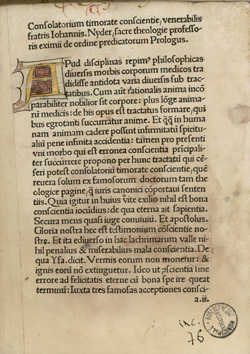 Consolatorium timorate conscientie, venerabilis
fratris Iohannis, Nyder, sacre theologie professo
ris eximii de ordine predicatorum Prologus.
Apud disciplinas philosophicas
diuersis morbis corporum medicos tra
didisse antidota varia diuersis sub trac
tatibus. Cum aut rationalis anima incō
parabiliter nobilior sit corpore; plus lōge anima
rū medicis; de his opus est tractatus formare, qui
bus egrotanti succurratur anime. Et in huma
nam animam cadere possunt infirmitati spiritu
aliui pene infinita accidentia: tamen pro presenti
vni morbo qui est erronea conscientia principali
ter succurrere propono per hunc tractatū qui cē
seri potest consolatoriū timorate conscientie, que
teuera solum ex famosorum doctorum tam the
ologice pagine, iuris canonici cōportaui senten
tiis. Quia igitur in huius vite exilio nihil est bona
conscientia iocūdius: de qua eterna ait sapientia.
Secura mens quasi iuge conuiuiū. Et apostolus.
Gloria nostra hec est testimoniū cōscientie no
stre. Et ita ediuerso in hac lachrimarum valle ni
hil penalius & miserabilius mala conscientia. De
qua Ysa.dicit. Vermis eorum non monetur: &
ignis eorū nō extinguetur. Ideo ut cōscientia sine
errore ad felicitatis eterne cū bona spe ire queat
terminū: Iuxta tres famosas acceptiones consci
a.ii.
inc.
76